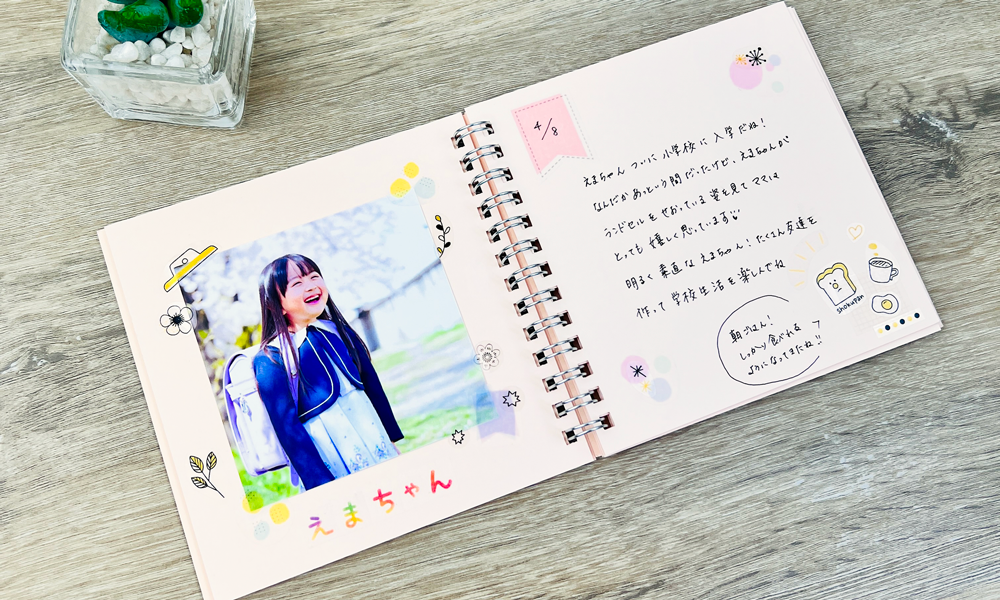 えまちゃん
4/8
えまちゃん ついに 小学校に 入学だね!
なんだかあっという間だったけど、えまちゃんが
ランドセルをせおっている姿を見てママは
とっても 嬉しく思っています
明るく 素直な えまちゃん!たくさん友達を
作って 学校生活を楽しんでね
朝ごはん!
しっかり食べれる
ようになってきたね!!
shokupan